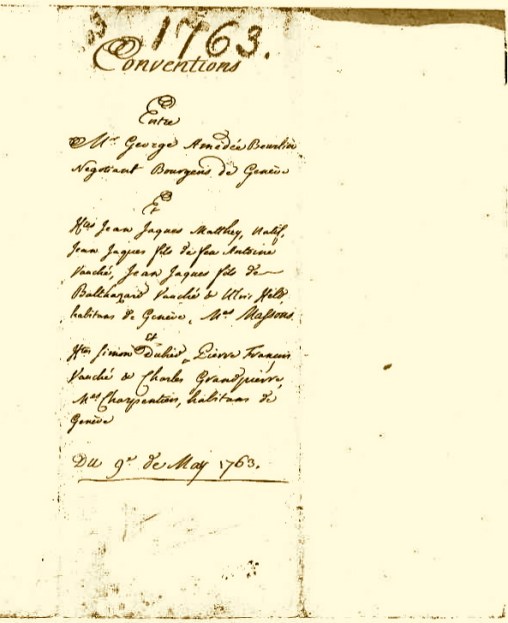 1763.
Conventions
Entre
Mr. George Amédée Bourlin
Negotiant Bourgeois de Genève
Et
Jean Jaques Matthey, Natif,
Jean Jaques fils de feu Antoine
Vauché, Jean Jaques fils de
Balthazard Vauché &
habitans de Genève, Mes Massons.
et
Simon Dubied, Pierre François
Vauché & Charles Grandpierre,
Mes Charpentiers, habitans de
Genève
Du 9e de May 1763.